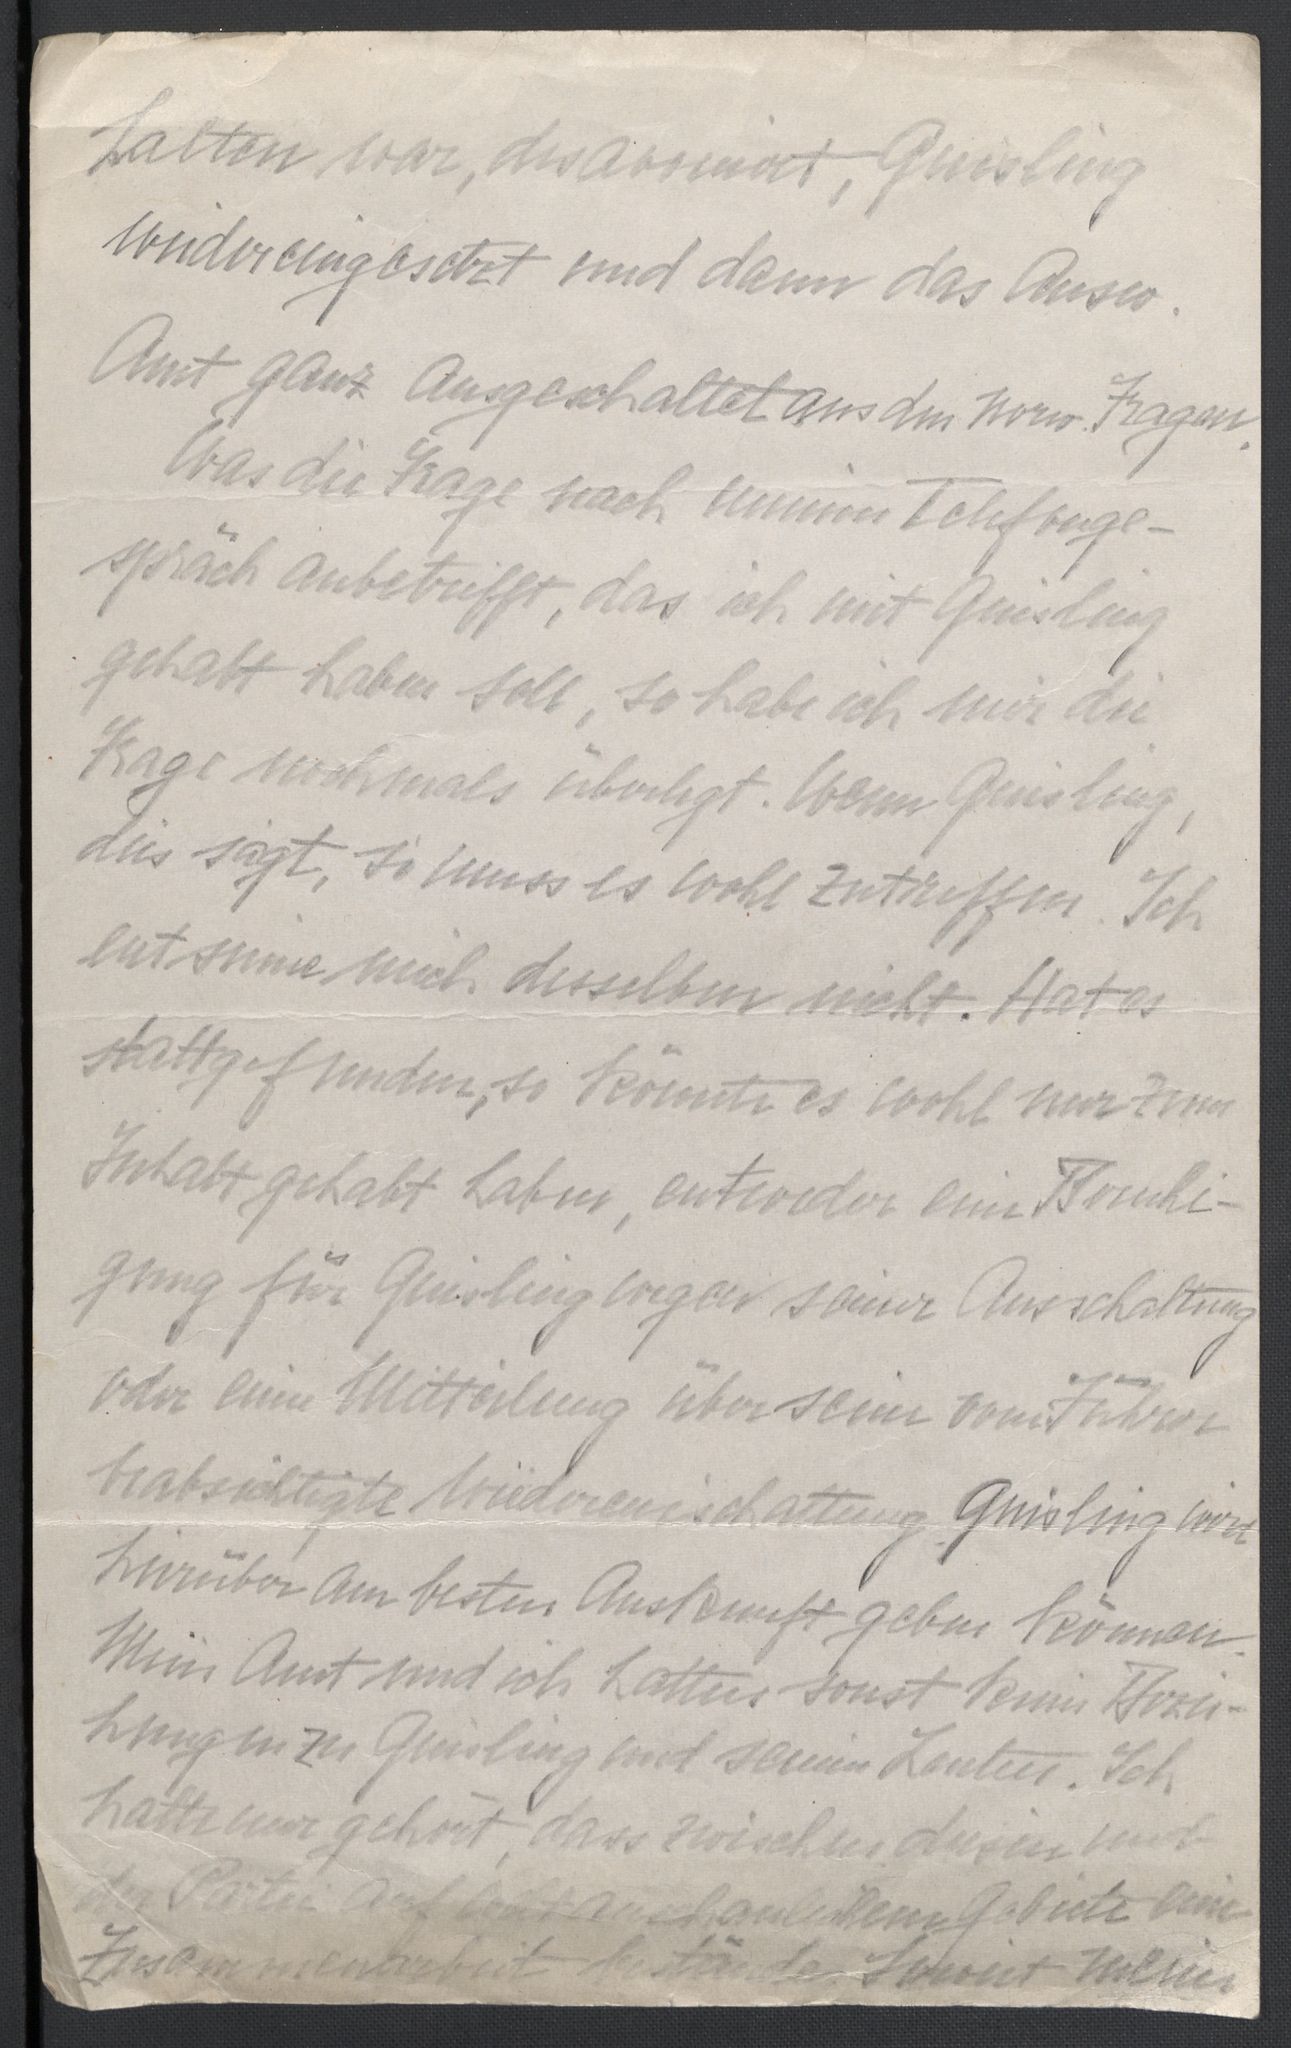 halten war, desavouiert, Quisling
wiedereingesetzt und dann das Ausw.
Amt ganz ausgeschaltet aus den norw. Fragen.
Was die Frage nach meinem Telefonge-
spräch anbetrifft, das ich mit Quisling
gehabt haben soll, so habe ich mir die
Frage nochmals überlegt. Wenn Quisling,
dies sagt, so muss es wohl zutreffen. Ich
entsinne mich desselben nicht. Hat es
stattgefunden, so könnte es wohl nur zum
Inhalt gehabt haben, entweder eine Beruhi-
gung für Quisling wegen seiner Ausschaltung
oder eine Mitteilung über seine vom Führer
beabsichtigte Wiedereinschaltung. Quisling wird
hierüber am besten Auskunft geben können.
Mein Amt und ich hatten sonst keine Bezie-
hungen zu Quisling und seinen Leuten. Ich
hatte nur gehört, dass zwischen diesen und
der Partei auf weltanschaulichem Gebiete eine
Zusammenarbeit bestände. Soweit meine